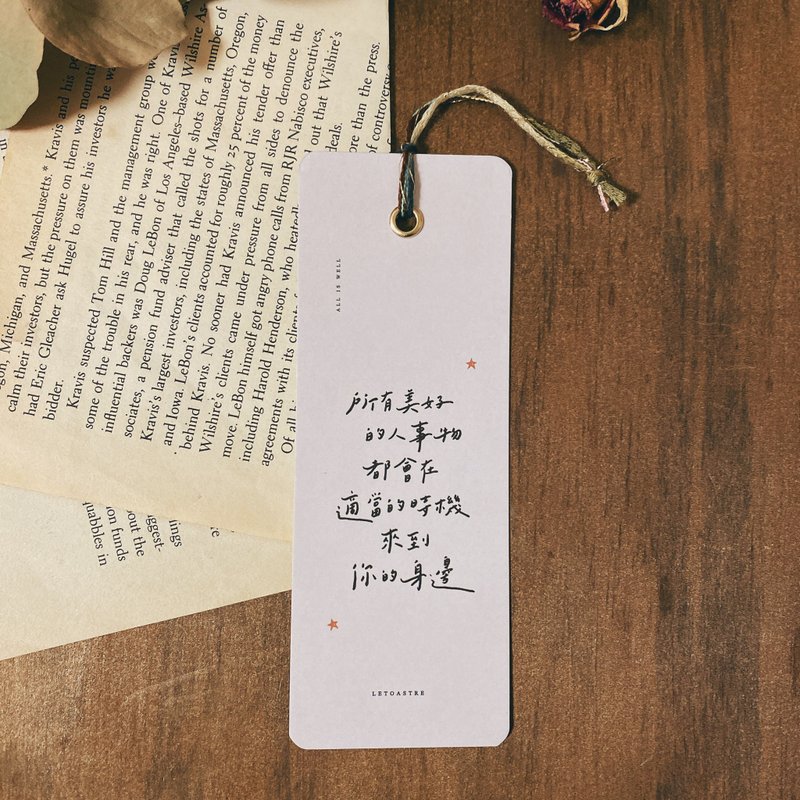 ALL IS WELL
所有美好
的人事物
都會在
適當的時機
來到
你的身邊
LETOASTRE
gon, Michigan, and Massachusetts.* Kravis and his p
calm their investors, but the pressure on them was mountin
had Eric Gleacher ask Hugel to assure his investors he wa
bidder.
Kravis suspected Tom Hill and the management group w
some of the trouble in his rear, and he was right. One of Kravi
influential backers was Doug LeBon of Los Angeles–based Wilshire As-
sociates, a pension fund adviser that called the shots for a number of
Kravis's largest investors, including the states of Massachusetts, Oregon,
and Iowa. LeBon's clients accounted for roughly 25 percent of the money
behind Kravis. No sooner had Kravis announced his tender offer than
Wilshire's clients came under pressure from all sides to denounce the
move. LeBon himself got angry phone calls from RJR Nabisco executives,
including Harold Henderson, who heatedly
out that Wilshire's
agreements with its clients
deals.
Of all
ore than the press.
of controversy
ggest-
out the
on funds
quabbles in